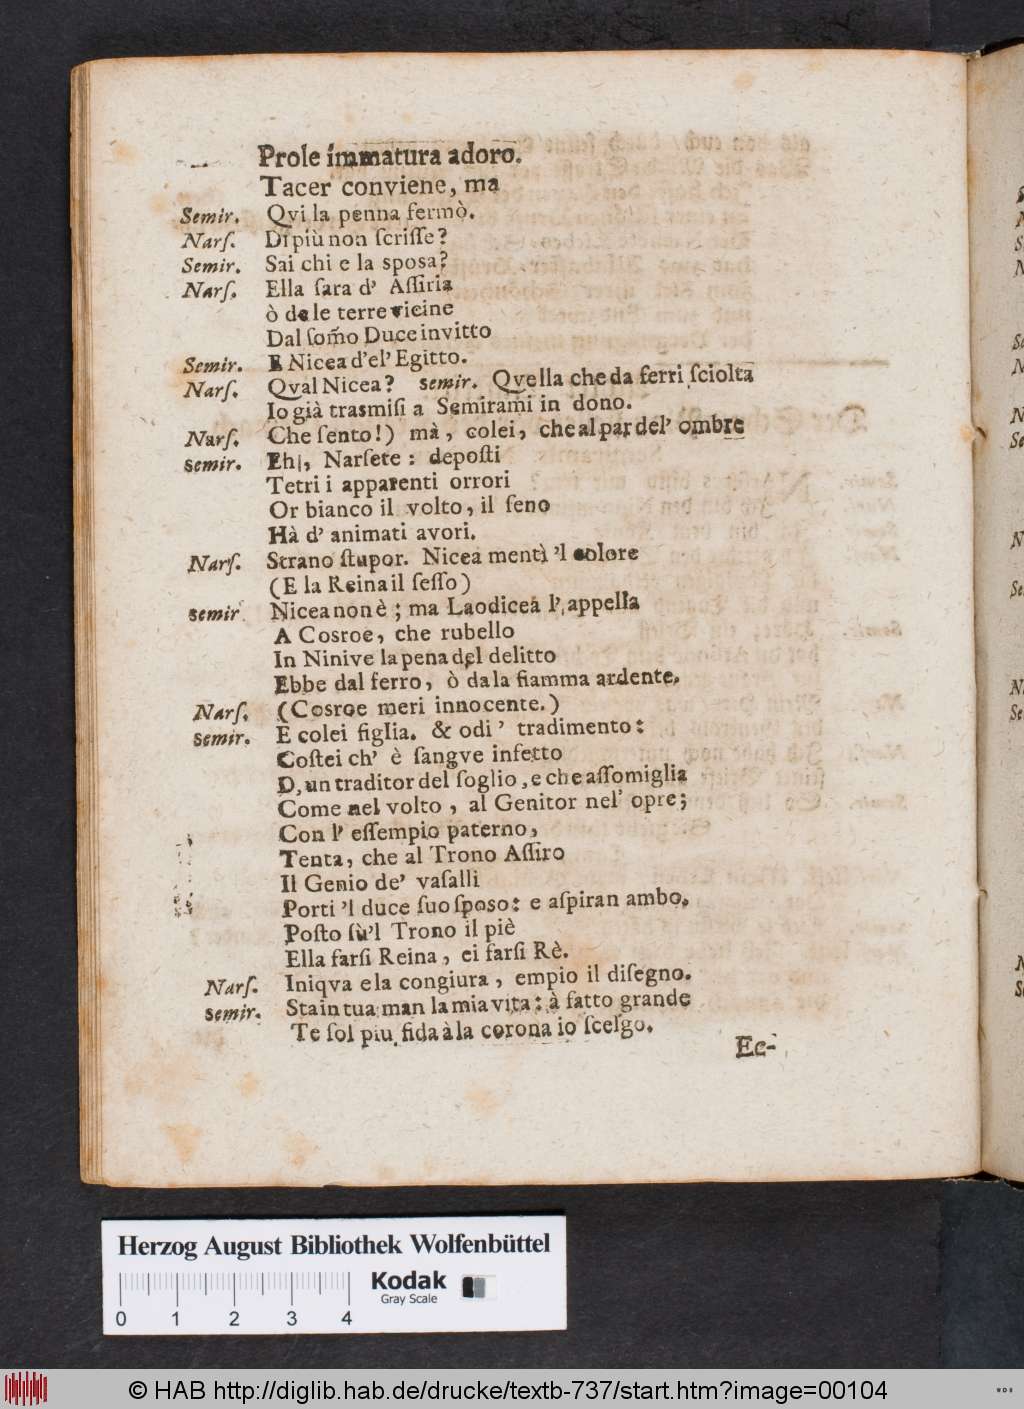 Prole immatura adoro.
Tacer conviene, ma
Semir. Qvi la penna fermò.
Narſ. Di più non ſcriſſe?
Semir. Sai chi e la sposa?
Narſ. Ella ſara d' Aſſiria
ò de le terre vicine
Dal som̃o Duce invitto
Semir. E Nicea d'el' Egitto.
Narſ. Qval Nicea? Semir. Qvella che da ferri ſciolta
Io già trasmiſi a Semirami in dono.
Narſ. Che ſento!) mà, colei, che al par del' ombre
Semir. Eh, Narſete: depoſti
Tetri i apparenti orrori
Or bianco il volto, il ſeno
Hà d' animati avori.
Narſ. Strano ſtupor. Nicea mentì 'l colore
(E la Reina il ſeſſo)
Semir Nicea non è; ma Laodicea l' appella
A Cosroe, che rubello
In Ninive la pena del delitto
Ebbe dal ferro, ò da la fiamma ardente.
Narſ. (Cosroe meri innocente.)
Semir. E colei figlia. & odi' tradimento:
Coſtei ch' è ſangve infetto
D, un traditor del ſoglio, e che aſſomiglia
Come nel volto, al Genitor nel' opre;
Con l' eſſempio paterno,
Tenta, che al Trono Aſſiro
Il Genio de' vaſalli
Porti 'l duce ſuo sposo: e aſpiran ambo,
Poſto sù'l Trono il piè
Ella farſi Reina, ei farſi Rè.
Narſ. Iniqva e la congiura, empio il diſegno.
Semir. Sta in tua man la mia vita: à fatto grande
Te ſol piu fida à la corona io ſcelgo.
Ec-
Herzog August Bibliothek Wolfenbüttel
0 1 2 3 4
Kodak
Gray Scale
© HAB http://diglib.hab.de/drucke/textb-737/start.htm?image=00104